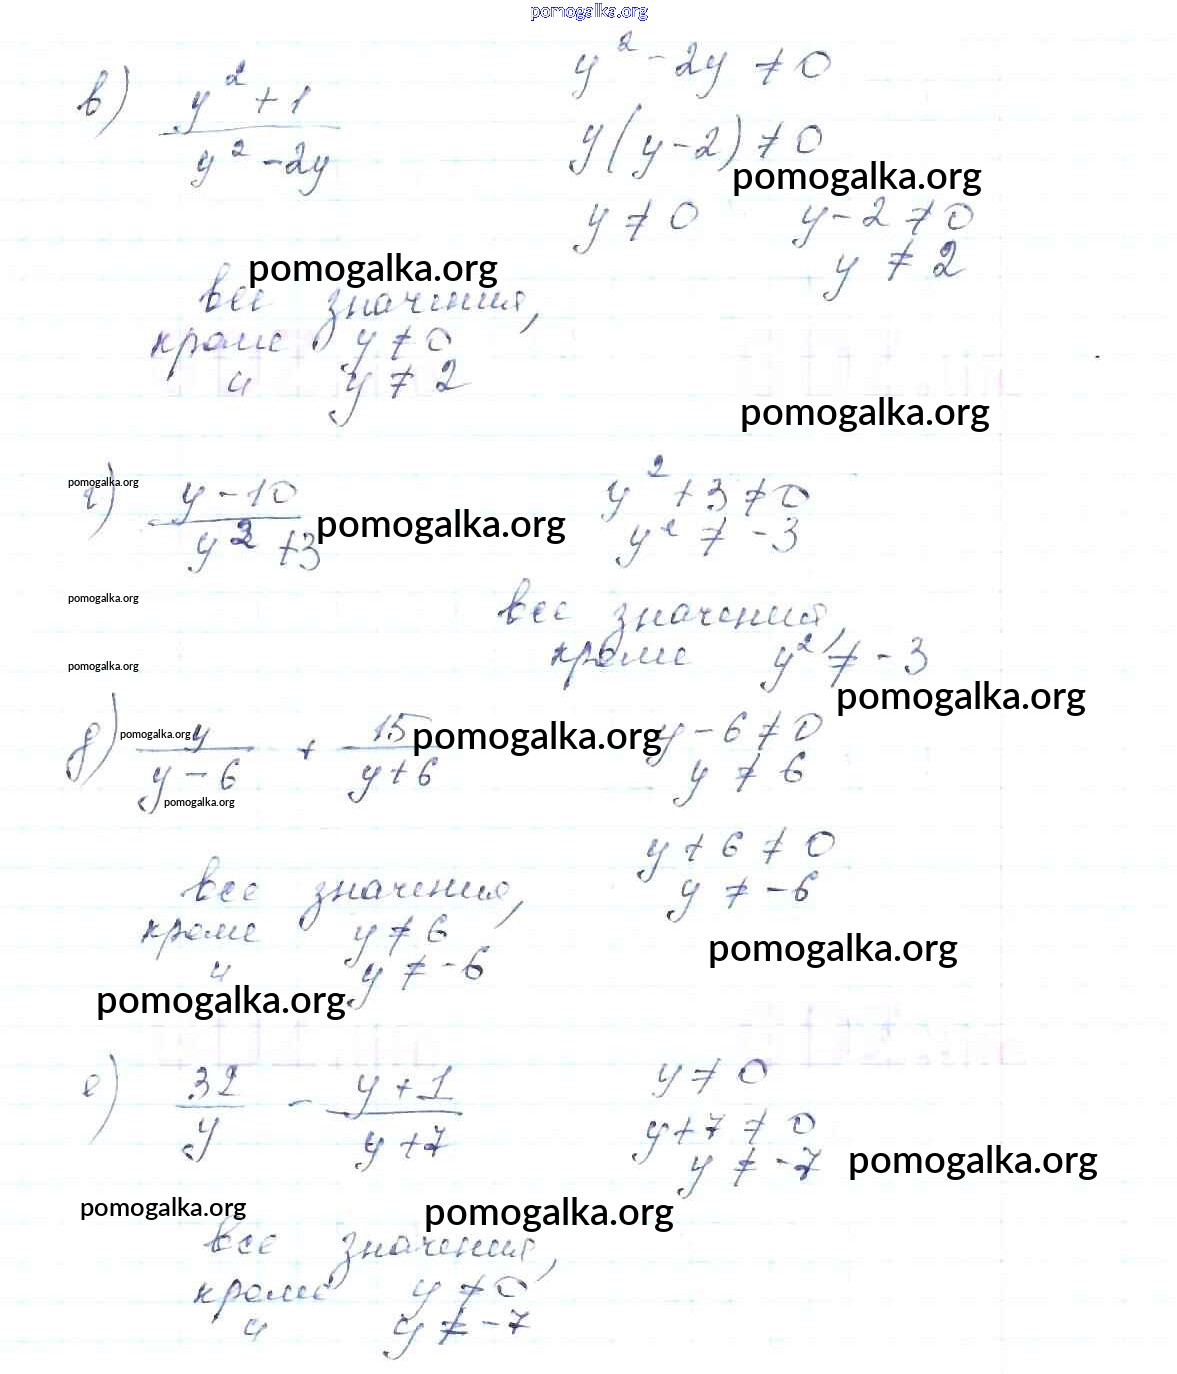 pomogalka.org
в) y² + 1 / y² - 2y
y² - 2y ≠ 0
y(y - 2) ≠ 0
pomogalka.org
y ≠ 0 y - 2 ≠ 0
y ≠ 2
pomogalka.org
все значения,
кроме y ≠ 0
и y ≠ 2
pomogalka.org
pomogalka.org
г) y - 10 / y² + 3
pomogalka.org
y² + 3 ≠ 0
y² ≠ -3
pomogalka.org
все значения,
кроме y² ≠ -3
pomogalka.org
pomogalka.org
д) y / y - 6 + 15 / y + 6
pomogalka.org
pomogalka.org
y - 6 ≠ 0
y ≠ 6
pomogalka.org
y + 6 ≠ 0
y ≠ -6
все значения,
кроме y ≠ 6
и y ≠ -6
pomogalka.org
pomogalka.org
е) 32 / y - y + 1 / y + 7
y ≠ 0
y + 7 ≠ 0
y ≠ -7
pomogalka.org
pomogalka.org
pomogalka.org
все значения,
кроме y ≠ 0
и y ≠ -7